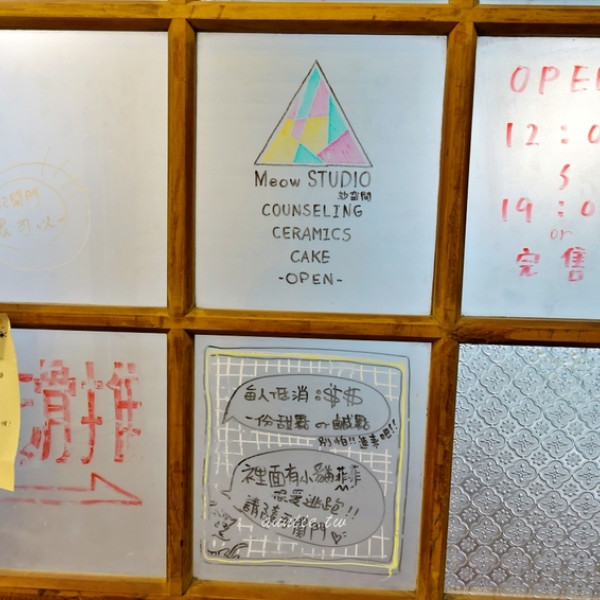 Meow STUDIO
妙空間
COUNSELING
CERAMICS
CAKE
-OPEN-
OPE
12:0
19:0
or
完售
滑推
每人低消:$$
一份甜點 or 鹹點
別怕!!進來吧!!
裡面有小貓菲菲
很愛逃跑
請隨手關門